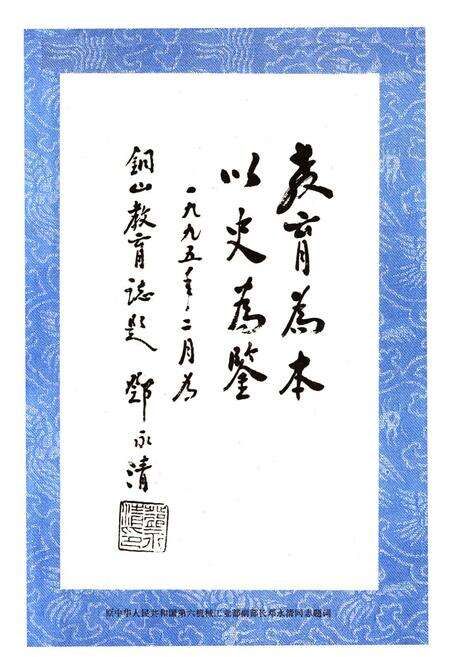 教育為本
以史為鑒
一九九五年二月為
銅山教育誌題 鄧永清
鄧永清印
原中华人民共和国第六机械工业部副部长邓永清同志题词